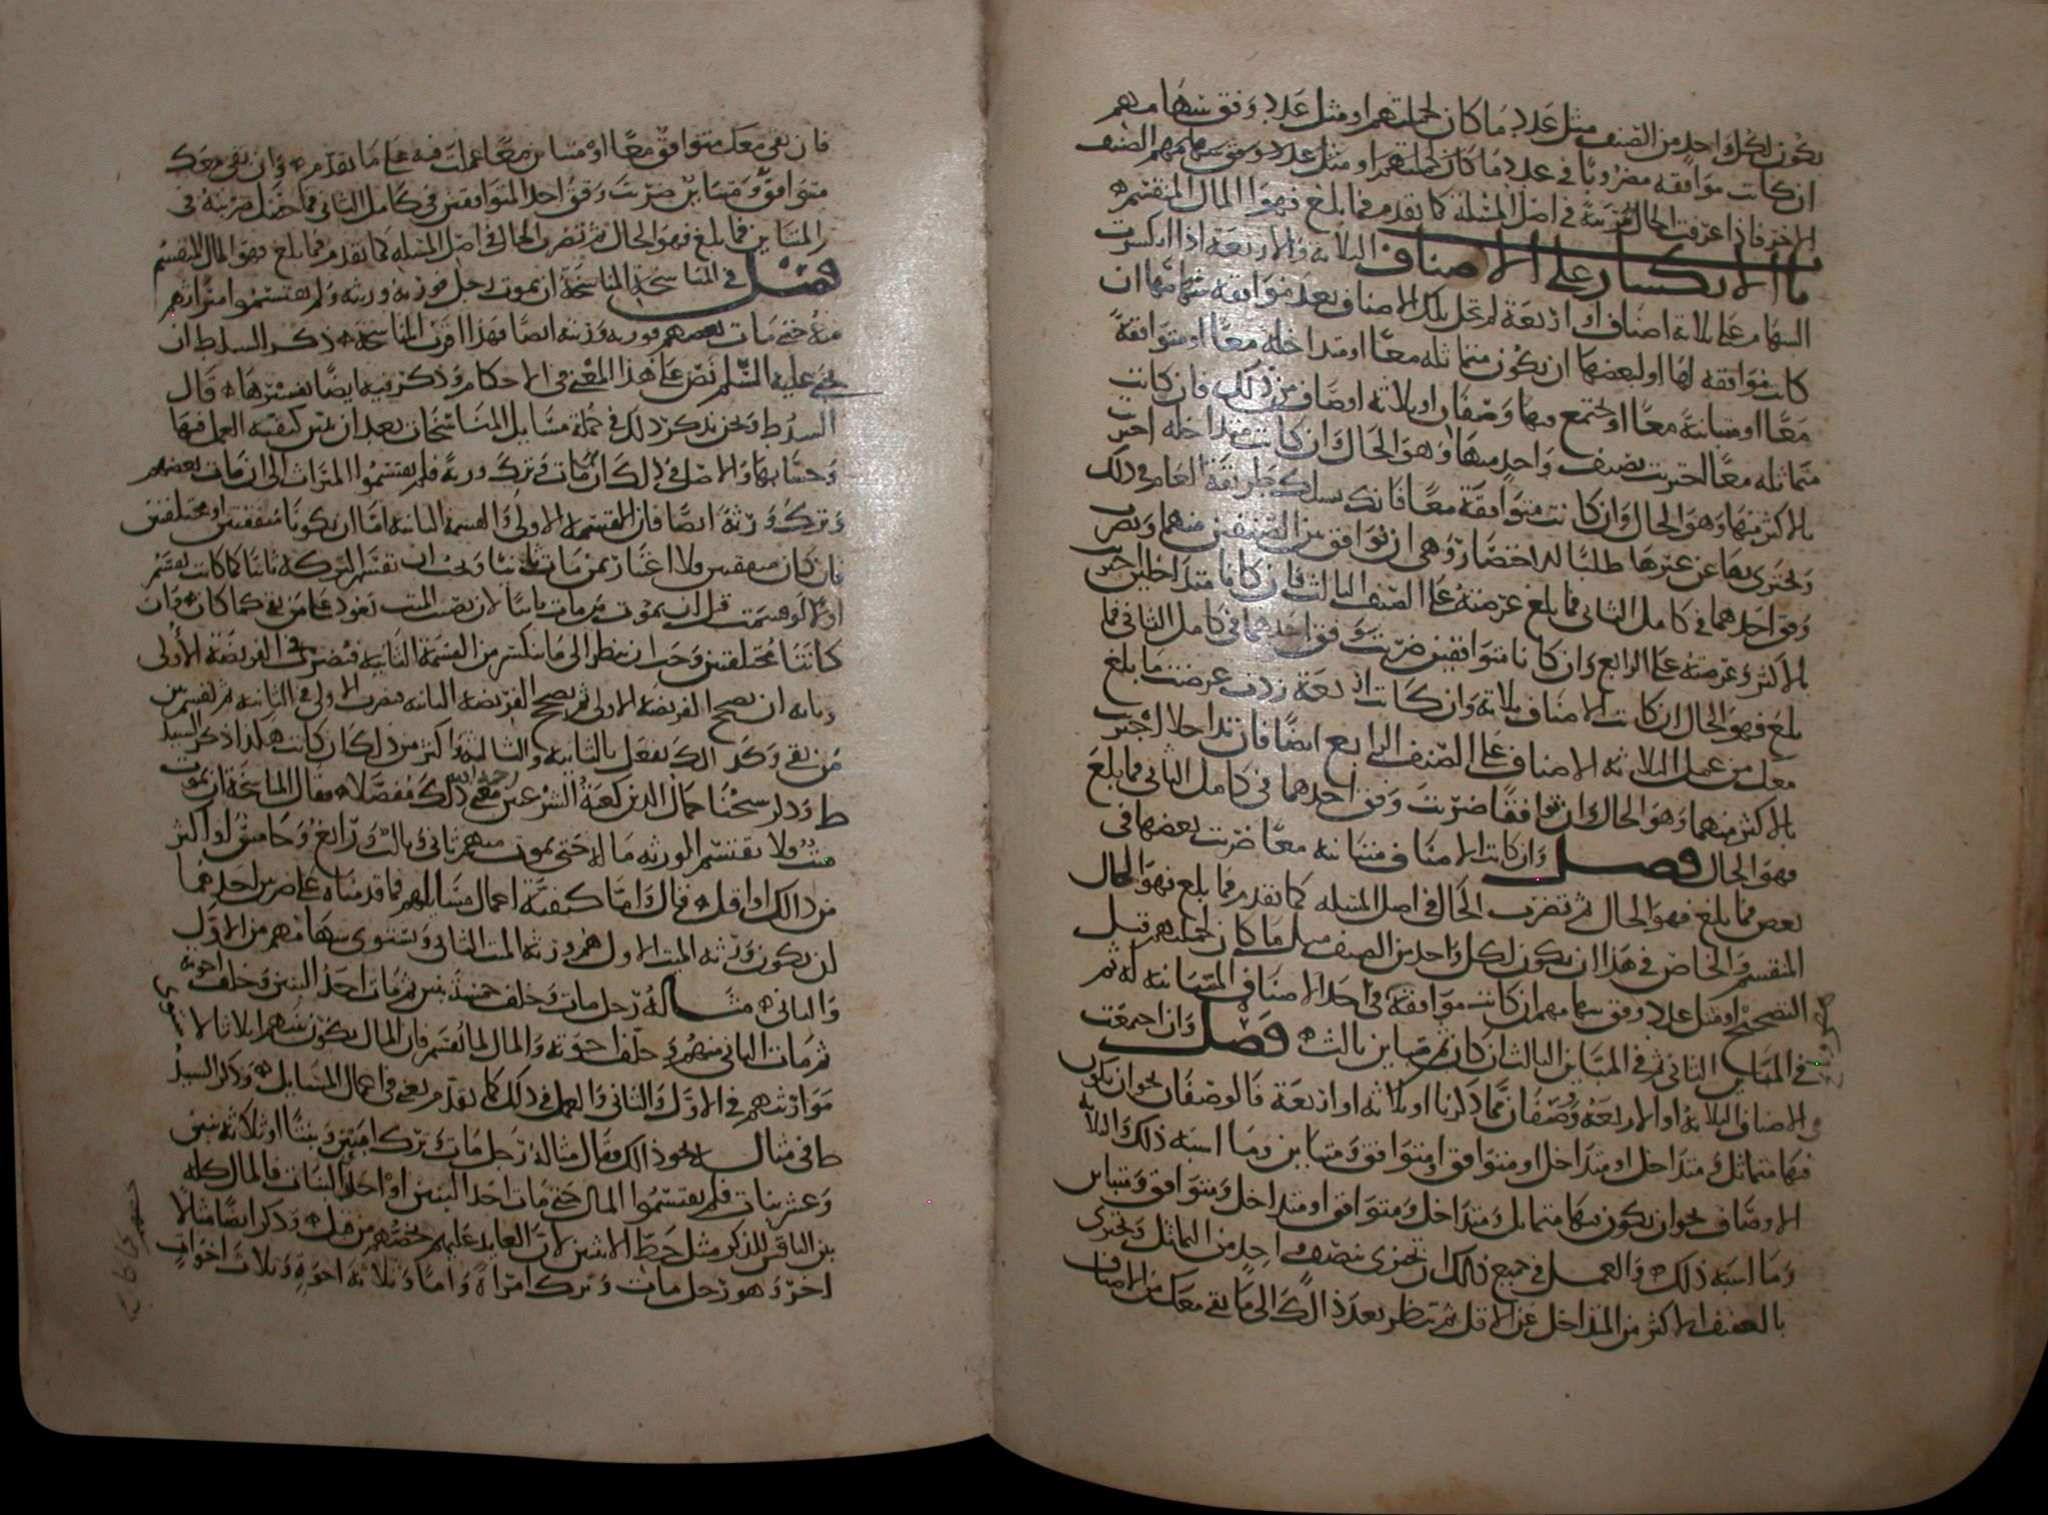 يكون لكل واحد من الصنف مثل عدد ما كان لجملتهم او مثل عدد وفق سهامهم
ان كانت موافقه مضروبا في عدد ما كان لجملتهم او مثل عدد وفق سهامهم الصنف
الاخر فاذا عرفت الحال ضربته في اصل المسئلة كما تقدم فما بلغ فهو المال المنقسم
ما الانكسار على الاصناف الثلاثة والاربعة اذا انكسرت
السهام على ثلاثة اصناف او اربعة لم تخل تلك الاصناف بعد موافقة سهامها ان
كانت موافقه لها او لبعضها ان يكون متماثله معا او متداخله معا او متوافقة
معا او متباينة معا او يجتمع فيها وصفان او ثلاثه اوصاف من ذلك فان كانت
متماثله معا اجتزيت بصنف واحد منها وهو الحال وان كانت متداخله اجتزيت
بالاكثر منها وهو الحال وان كانت متوافقة معا فانك تسلك طريقة العام في ذلك
ويجتزى بها عن غيرها طلبا للاختصار وهي ان توافق بين الصنفين منهما وتضرب
وفق احدهما في كامل الثاني فما بلغ عرضته على الصنف الثالث فان كانا متداخلين اجتزيت
بالاكثر وعرضته على الرابع وان كانا متوافقين ضربت وفق احدهما في كامل الثاني فما
بلغ فهو الحال ان كانت الاصناف ثلاثة وان كانت اربعة زدت عرضت ما بلغ
معك من عمل الثلاثه الاصناف على الصنف الرابع ايضا فان تداخلا اجتزيت
بالاكثر منهما وهو الحال وان توافقا ضربت وفق احدهما في كامل الثاني فما بلغ
فهو الحال فصل وان كانت الاصناف متباينه معا ضربت بعضها في
بعض فما بلغ فهو الحال ثم تضرب الحال في اصل المسئله كما تقدم فما بلغ فهو المال
المنقسم والخاص في هذا ان يكون لكل واحد من الصنف مثل ما كان لجملتهم قبل
التصحيح او مثل عدد وفق سهامهم ان كانت موافقة في احد الاصناف المتباينه له ثم
في المباين الثاني ثم في المباين الثالث ان كان ثم مباين ثالث فصل وان اجتمعت
والاصناف الثلاثة او الاربعة وصفان مما ذكرنا او ثلاثه او اربعة فالوصفان نحو ان يكون
فيها متماثل ومتداخل او متداخل او متوافق او متوافق ومتباين وما اشبه ذلك والثلاثة
الاوصاف نحو ان يكون فيها متماثل ومتداخل ومتوافق او متداخل ومتوافق ومتباين
وما اشبه ذلك والعمل في جميع ذلك ان تجتزى بصنف واحد من التماثل وتجتزى
بالصنف الاكثر من المتداخل عن الاقل ثم تنظر بعد ذلك الى ما بقي معك من الاصناف
فان بقي معك متوافق معا او متباين معا عملت فيه على ما تقدم وان بقي معك
متوافق ومتباين ضربت وفق احد المتوافقين في كامل الثاني فما حصل ضربته في
المتباين فما بلغ فهو الحال ثم تضرب الحال في اصل المسئله كما تقدم فما بلغ فهو المال المنقسم
فصل في المناسخة المناسخة ان يموت رجل فورثه ورثته ولم يقتسموا ميراثهم
منه حتى مات بعضهم فورثه ورثته ايضا فهذا اقرب المناسخة ذكر السيد ط ان
يحيى عليه السلم نص على هذا المعنى في الاحكام وذكر فيه ايضا تفسيرها قال
السيد ط ونحن نذكر ذلك في جملة مسايل المناسخات بعد ان نبين كيفيه العمل فيها
وحسابها والاصل في ذلك ان مات وترك ورثة فلم يقتسموا الميراث الى ان مات بعضهم
وترك ورثة ايضا فان القسمه الاولى والقسمه الثانيه اما ان يكونا متفقتين او مختلفتين
فان كان متفقتين فلا اعتبار بمن مات ثانيا ويجب ان تقسم التركه ثانيا كما كانت تقسم
اولا لو قسمت قبل ان يموت من مات ثانيا لان نصيب الميت يعود على من بقي كما كان وان
كانتا مختلفتين وجب ان ينظر الى ما ينكسر من القسمة الثانيه فيضرب في الفريضة الاولى
وبابه ان تصحح الفريضه الاولى ثم تصحح الفريضه الثانيه فتضرب الاولى في الثانيه ثم تقسم بين
من بقي وكذلك تفعل بالثانيه والثالثه واكثر من ذلك ان كانت هكذا ذكر السيد
ط وذكر شيخنا جمال الدين رحمة الله معنى ذلك مفصلا فقال المناسخة ان يموت
ميت ولا يقتسم الورثه ماله حتى يموت منهم ثاني وثالث ورابع وخامس او اكثر
من ذلك او اقل قال واما كيفية اعمال مسايلهم فما قدمناه على ضربين احدهما
ان يكون ورثه الميت الاول هم ورثة الميت الثاني وتستوى سهامهم من الاول
والثاني مثاله رجل مات وخلف خمسة بنين ثم مات احد البنين وخلف اخوته
ثم مات الثاني منهم وخلف اخوته والمال لما يقسم فان المال يكون بينهم اثلاثا لاستوى
مواريثهم في الاول والثاني والعمل في ذلك كما تقدم يعني في اعمال المسايل وذكر السيد
ط في مثاله نحو ذلك فقال مثاله رجل مات وترك ابنين وبنتا او ثلاثه بنين
وعشر بنات فلم يقتسموا المال حتى مات احد البنين او احد البنات فالمال كله
بين الباقين للذكر مثل حظ الانثيين لان العايد عليهم حقهم من قبل وذكر ايضا مثالا
اخر وهو رجل مات وترك امراة واما وثلاثه اخوة وثلاث اخوات